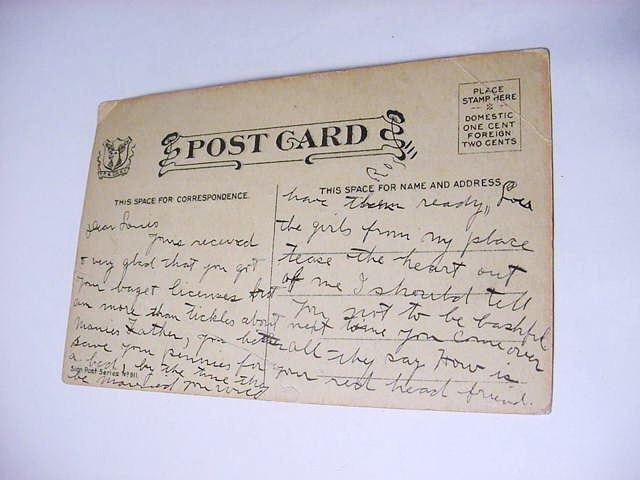 PLACE
STAMP HERE
DOMESTIC
ONE CENT
FOREIGN
TWO CENTS
POST CARD
THIS SPACE FOR CORRESPONDENCE.
THIS SPACE FOR NAME AND ADDRESS
Dear Louis
Yours recieved
+ very glad that you got
your licenses but
am more than tickles about
Manies Father, you better
save your pennies for
a bed, by the time they
be married you will
have them ready,
the girls from my place
tease the heart out
of me I should tell
you not to be bashful
next time you come over
all they say How is
your red head friend.
Sign Post Series No 911